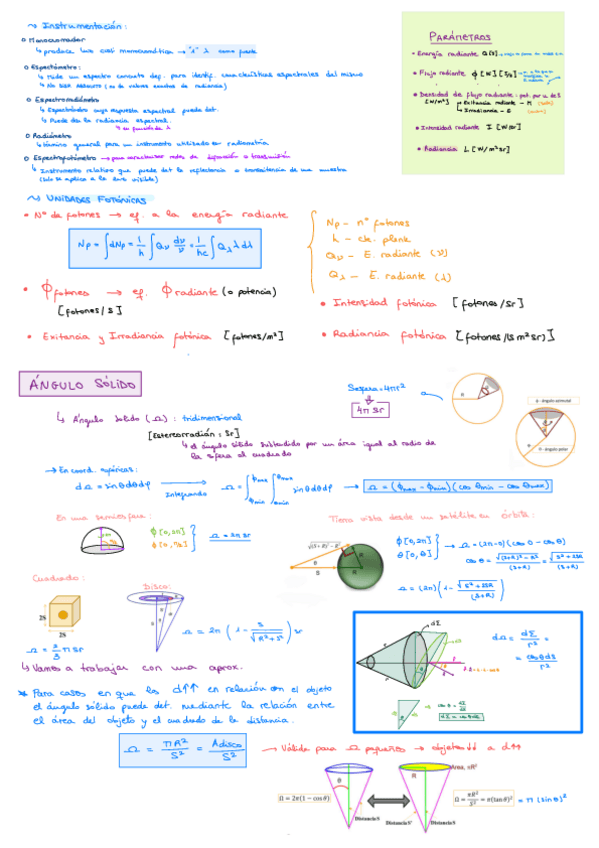 Instrumentación:
Monocromador
↳ produce luz casi monocromática → "1" λ como fuente
Espectómetro:
↳ Mide un espectro concreto dep. para identif. características espectrales del mismo
Espectrorradiómetro
↳ Espectrómetro cuya respuesta espectral puede det.
↳ Puede dar la radiancia espectral.
↳ en función de λ
Radiómetro
↳ término general para un instrumento utilizado en radiometría
Espectrofotómetro
↳ Instrumento relativo que puede det. la reflectancia o transmitancia de una muestra
(solo se aplica a la zona visible)
PARÁMETROS
• Energía radiante Q [J]
• Flujo radiante ϕ [W] [J/s]
• Densidad de flujo radiante: pot. por u. de S
[W/m²] Exitancia radiante - M
Irradiancia - E
• Intensidad radiante I [W/sr]
• Radiancia L [W/m² sr]
UNIDADES FOTÓNICAS
• Nº de fotones → eq. a la energía radiante
Np = ∫dNp = 1/h ∫Qν dν/ν = 1/hc ∫Qλ λ dλ
Np - nº fotones
h - cte. plank
Qν - E. radiante (ν)
Qλ - E. radiante (λ)
• ϕ fotones → eq. ϕ radiante (o potencia)
[fotones/s]
• Intensidad fotónica [fotones/sr]
• Exitancia y Irradiancia fotónica [fotones/m²]
• Radiancia fotónica [fotones/(s m² sr)]
ÁNGULO SÓLIDO
Sesfera = 4πr²
4π sr
↳ Ángulo sólido (Ω): tridimensional
[Estereorradián: sr]
↳ el ángulo sólido subtendido por un área igual al radio de
la esfera al cuadrado
→ En coord. esféricas:
dΩ = sinθdθdϕ → Integrando Ω = ∫ϕmin ϕmax ∫θmin θmax sinθdθdϕ → Ω = (ϕmax - ϕmin)(cosθmin - cosθmax)
En una semiesfera:
ϕ [0,2π]
θ [0,π/2]
Ω = 2π sr
Tierra vista desde un satélite en órbita:
ϕ [0,2π]
θ [0,θ]
→ Ω = (2π-0)(cos 0 - cos θ)
cos θ = √((S+R)² - R²)/(S+R) = √(S² + 2SR)/(S+R)
Ω = (2π)(1 - √(S² + 2SR)/(S+R))
Cuadrado:
2S
2S
Ω = 2/3 π sr
Disco:
Ω = 2π (1 - S/√(R²+S²)) sr
dΩ = dΣ/r² =
= cosθdS/r²
↳ Vamos a trabajar con una aprox.
* Para casos en que los d↑↑ en relación con el objeto
el ángulo sólido puede det. mediante la relación entre
el área del objeto y el cuadrado de la distancia.
Ω = πR²/S² = Adisco/S²
→ Válida para Ω pequeños → objetos↓↓ a d↑↑
Ω = 2π(1 − cos θ)
Área, πR²
Distancia S
Distancia S'
Distancia S
Ω = πR²/S² = π(tan θ)² = π (sin θ)²